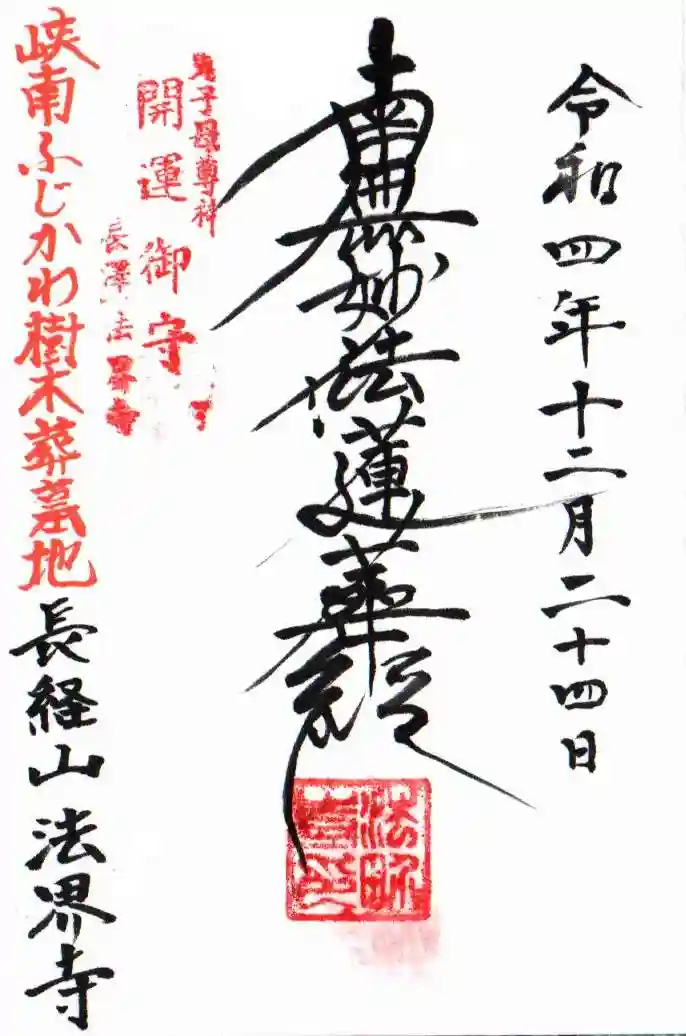 令和四年十二月二十四日
南無妙法蓮華経
開運御守
長澤法界寺
峡南ふじかわ樹木葬墓地
長経山法界寺